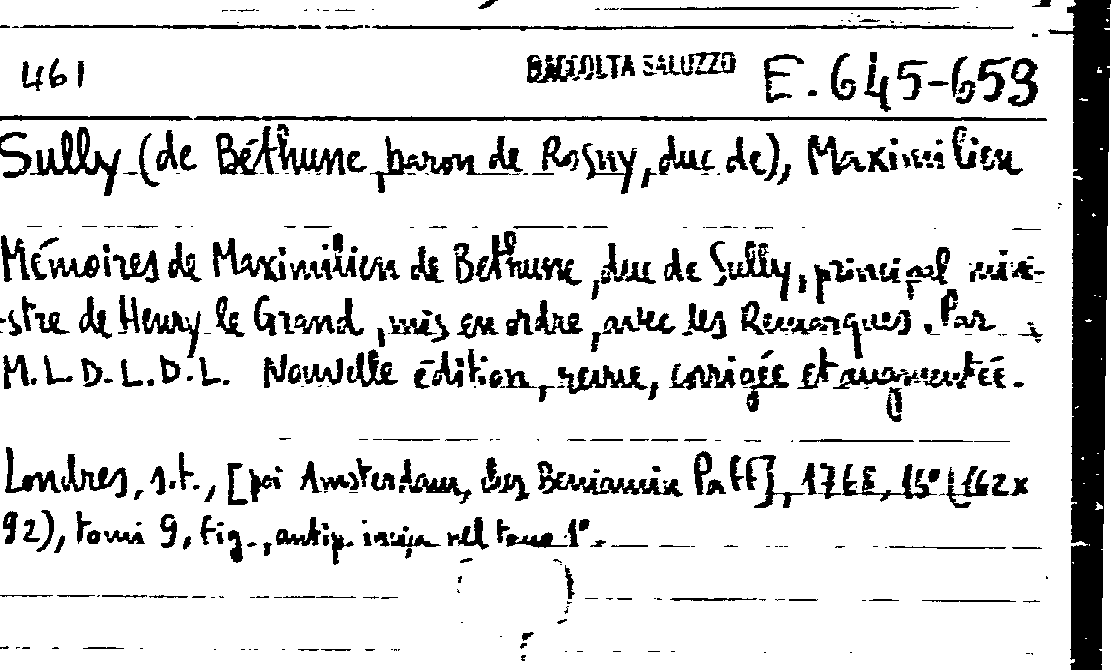 461 RACCOLTA SALUZZO E.645-659
Sully (de Béthune, baron de Rosny, duc de), Maximilien
Mémoires de Maximilien de Bethune, duc de Sully, principal mini-
stre de Henry le Grand, mis en ordre, avec les Remarques. Par
M.L.D.L.D.L. Nouvelle édition, revue, corrigée et augmentée.
Londres, s.t., [poi Amsterdam, chez Beniamin
92), tomi 9, fig., antip. incisa nel tomo 1°.